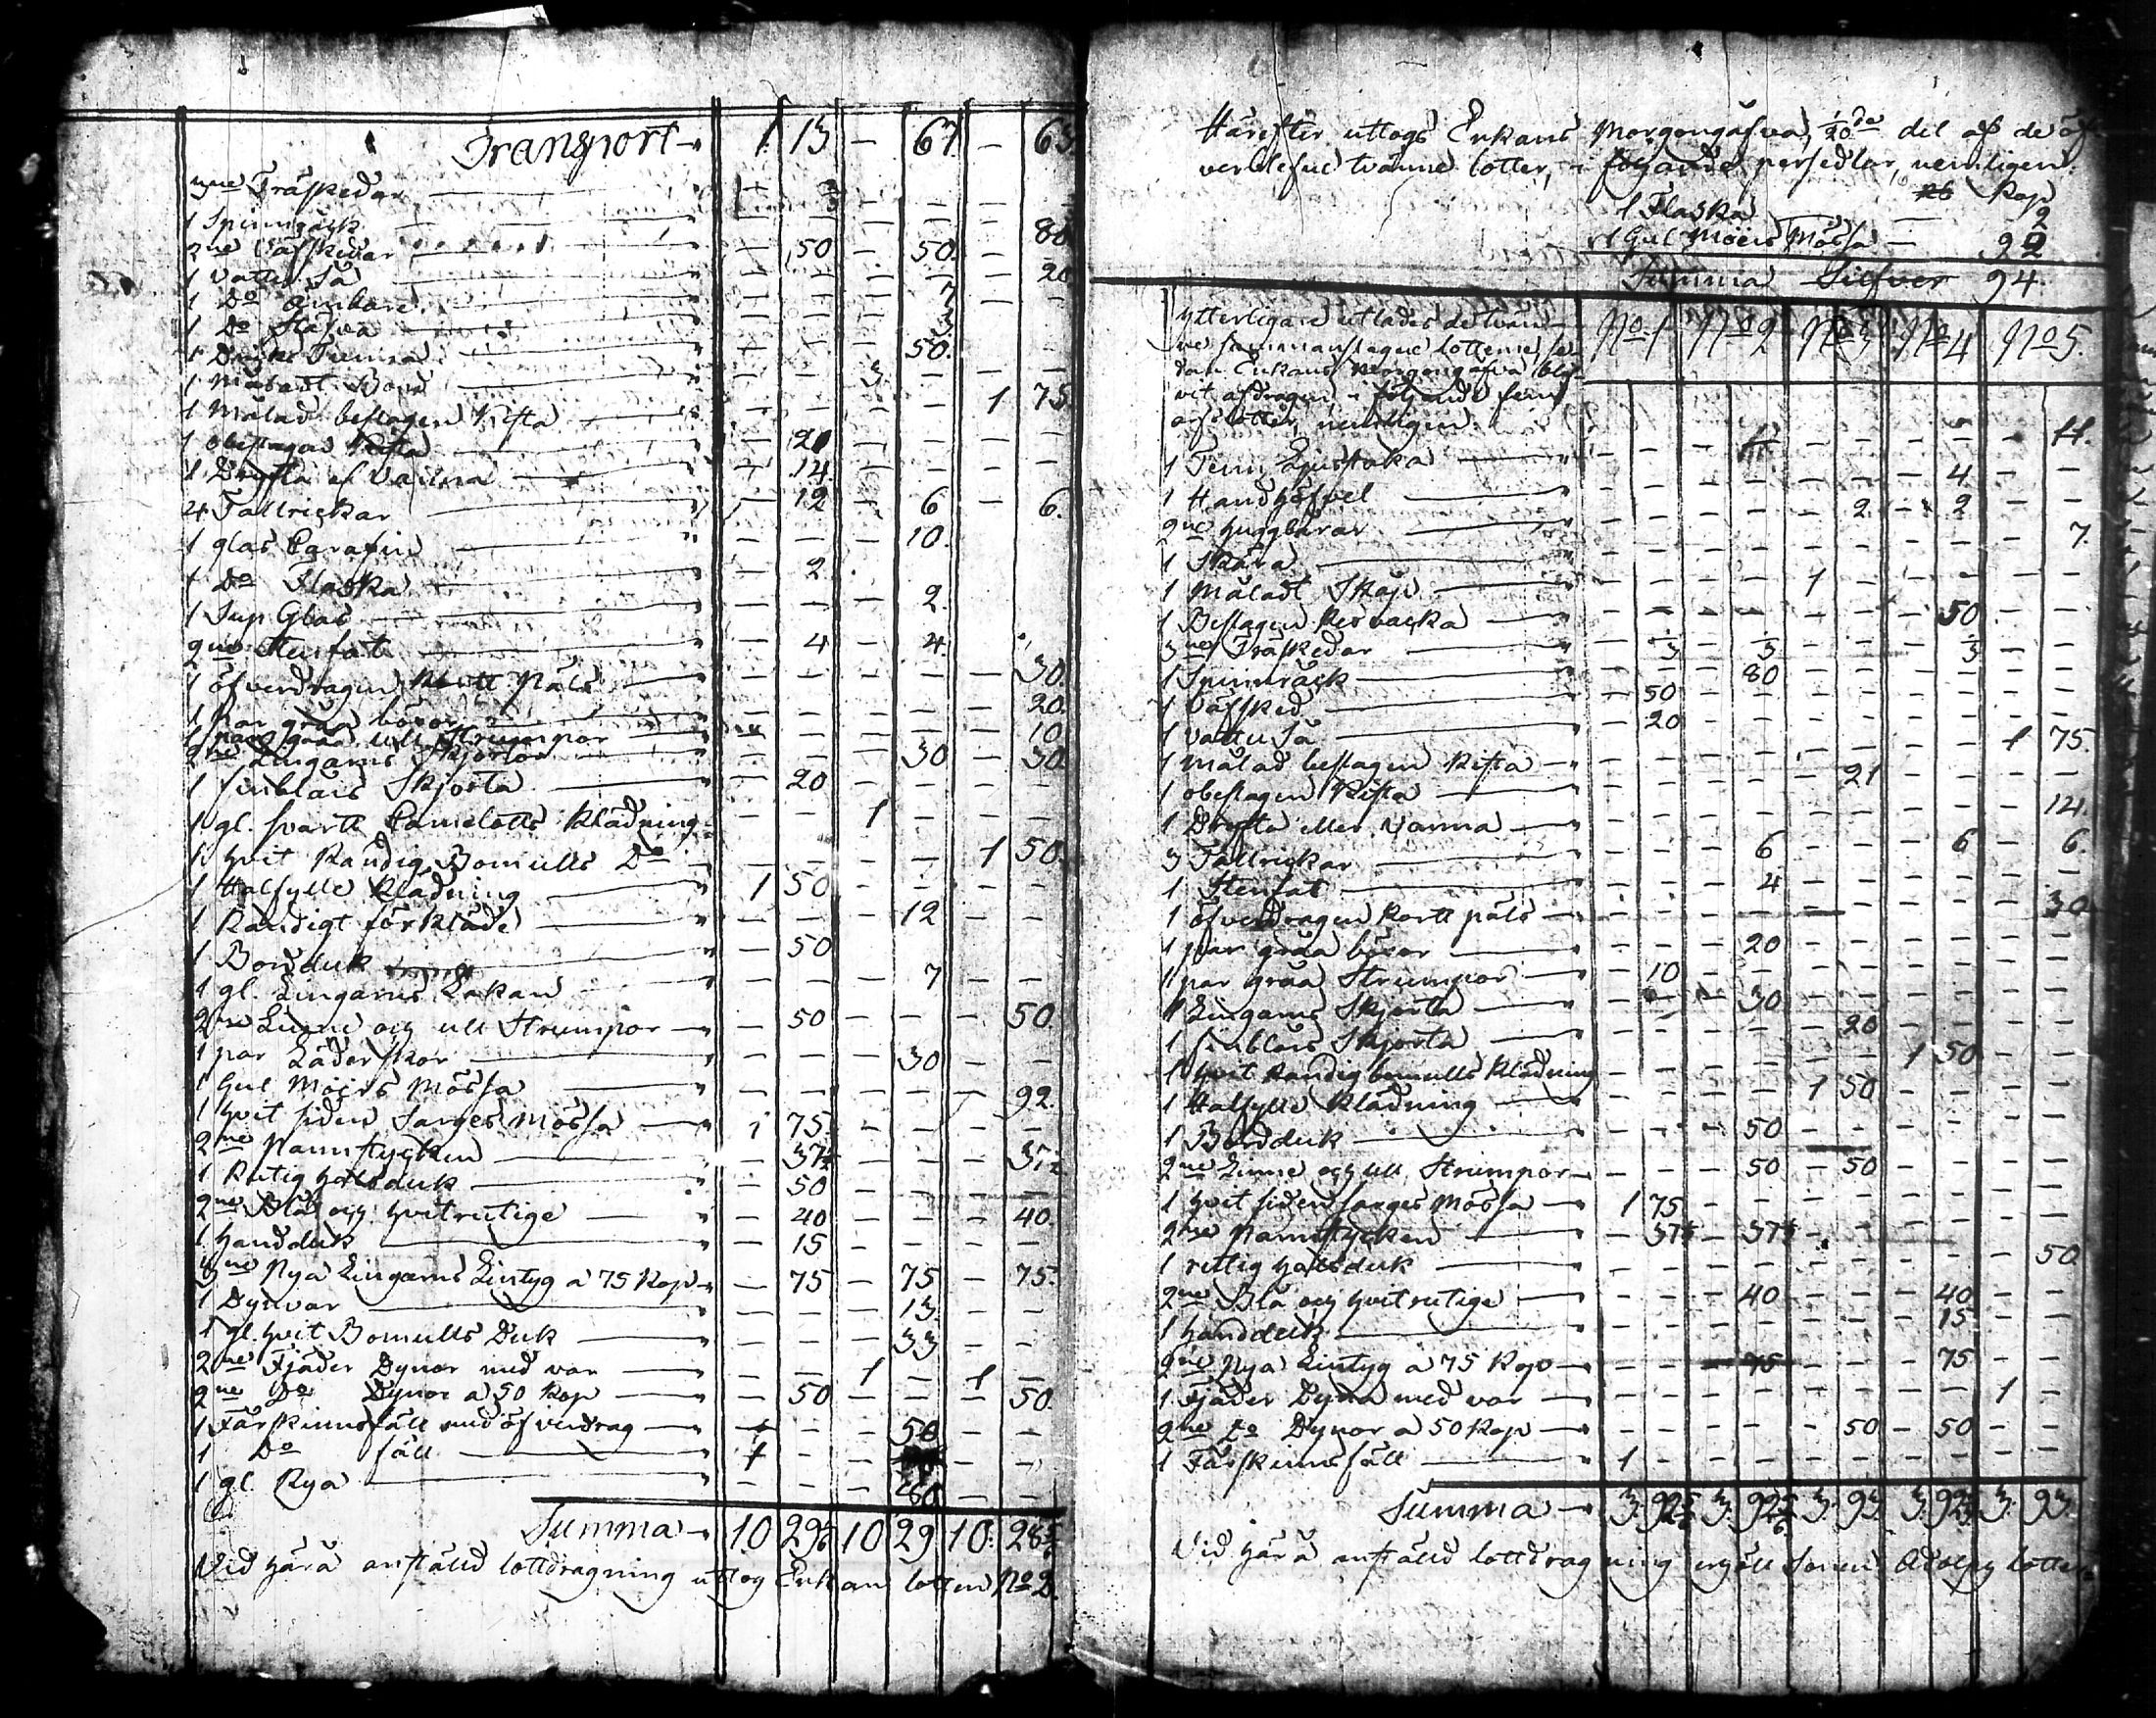 Transport 1 13 — 67 — 63
3ne Träskedar — 3
1 Spinnråck — 80
2ne Väfskedar — 50 — 50
1 Vattu Så — 20
1 Do Ämbare 7
1 Do Stäfva 3
1 Dricks Tunna 50.
1 Måladt Bord 3
1 Målad beslagen Kista 1 75.
1 obeslagen Kista 21
1 Dryfta el Vanna 14
4 Tallrickar — 12 — 6 — 6.
1 glas Carafin 10.
1 Do Flaska 2
1 Sup Glas 2.
2ne Stenfat — 4 — 4.
1 öfverdragen Kortt Päls 30.
1 par gråa böxor 20.
1 par gråa ull Strumpor 10
2ne Lingarns Skjortor 30 — 30.
1 sinblårs Skjorta — 20
1 gl. svartt Camelotts Klädning 1
1 hvit Randig Bomulls Do 1 50.
1 Halfylle Klädning 1 50
1 Randigt förkläde 12
1 Bordduk — 50
1 gl. Lingarns Lakan 7
2ne Linne och ull Strumpor — 50 — 50.
1 par Läderskor 30
1 Gul Moirs Mössa 92.
1 hvit siden Sarges Mössa 1 75.
2ne Pannstycken — 37½ — 37½
1 Rutig halsduk — 50
2ne Blå och hvitrutige — 40 — 40.
1 handduk — 15
3ne Nya Lingarns Lintyg a 75 Kop — 75 — 75 — 75.
1 Dynvar 13.
1 gl. hvit Bomulls Duk 33
2ne Fjäder Dynor med var 1 — 1 —
2ne Do Dynor a 50 Kop — 50 — 50.
1 Fårskinnsfäll med öfverdrag 50
1 Do fäll 1
1 gl. Rya 80
Summa 10 29 10 29 10. 28
Vid härå anstäld lottdragning uttog Enkan lotten No 2.
Härefter uttogs Enkans Morgongåfva, 1/20de del af de öf-
verblefne tvänne lotter, i följande persedlar, nemligen:
Kop
1 Flaska 2
1 Gul Moirs Mössa 92
Summa Silfver 94.
Ytterligare utlades de tvän-
ne sammanslagne lotterne, se-
dan Enkans Morgongåfva blif-
vit afdragen i följande fem
arfslotter, nemligen: No 1 No 2 No 3 No 4 No 5.
1 Tenn Ljustaka 11.
1 Handhöfvel 4
2ne Huggbärar 2 — 2
1 Skära 7.
1 Måladt Skåp 1
1 Beslagen 50
3ne Träskedar — 3 — 3 — 3
1 Spinnråck 80
1 Väfsked — 50
1 Vattu Så — 20
1 Målad beslagen Kista 1 75.
1 obeslagen Kista 21
1 Dryfta eller Vanna 14.
3 Tallrickar 6 — 6 — 6.
1 Stenfat 4
1 öfverdragen Kortt päls 30
1 par gråa böxor 20
1 par gråa Strumpor — 10
1 Lingarns Skjorta 30
1 sinblårs Skjorta 20
1 hvit Randig bomulls Klädning 1 50
1 Halfylle Klädning 1 50
1 Bordduk 50
2ne Linne och ull Strumpor 50 — 50
1 hvit siden sarges Mössa 1 75
2ne Pannstycken — 37½ — 37½
1 rutig halsduk 50
2ne Blå och hvitrutige 40 — 40
1 handduk 15
2ne Nya Lintyg a 75 Kop 75 — 75
1 Fjäder Dyna med var 1
2ne Do Dynor a 50 Kop 50 — 50
1 Fårskinnsfäll 1
Summa 3. 92 3. 92 3. 93. 3. 92 3. 93.
Vid härå anstäld lottdragning erhöll Sonen Adolph lotten